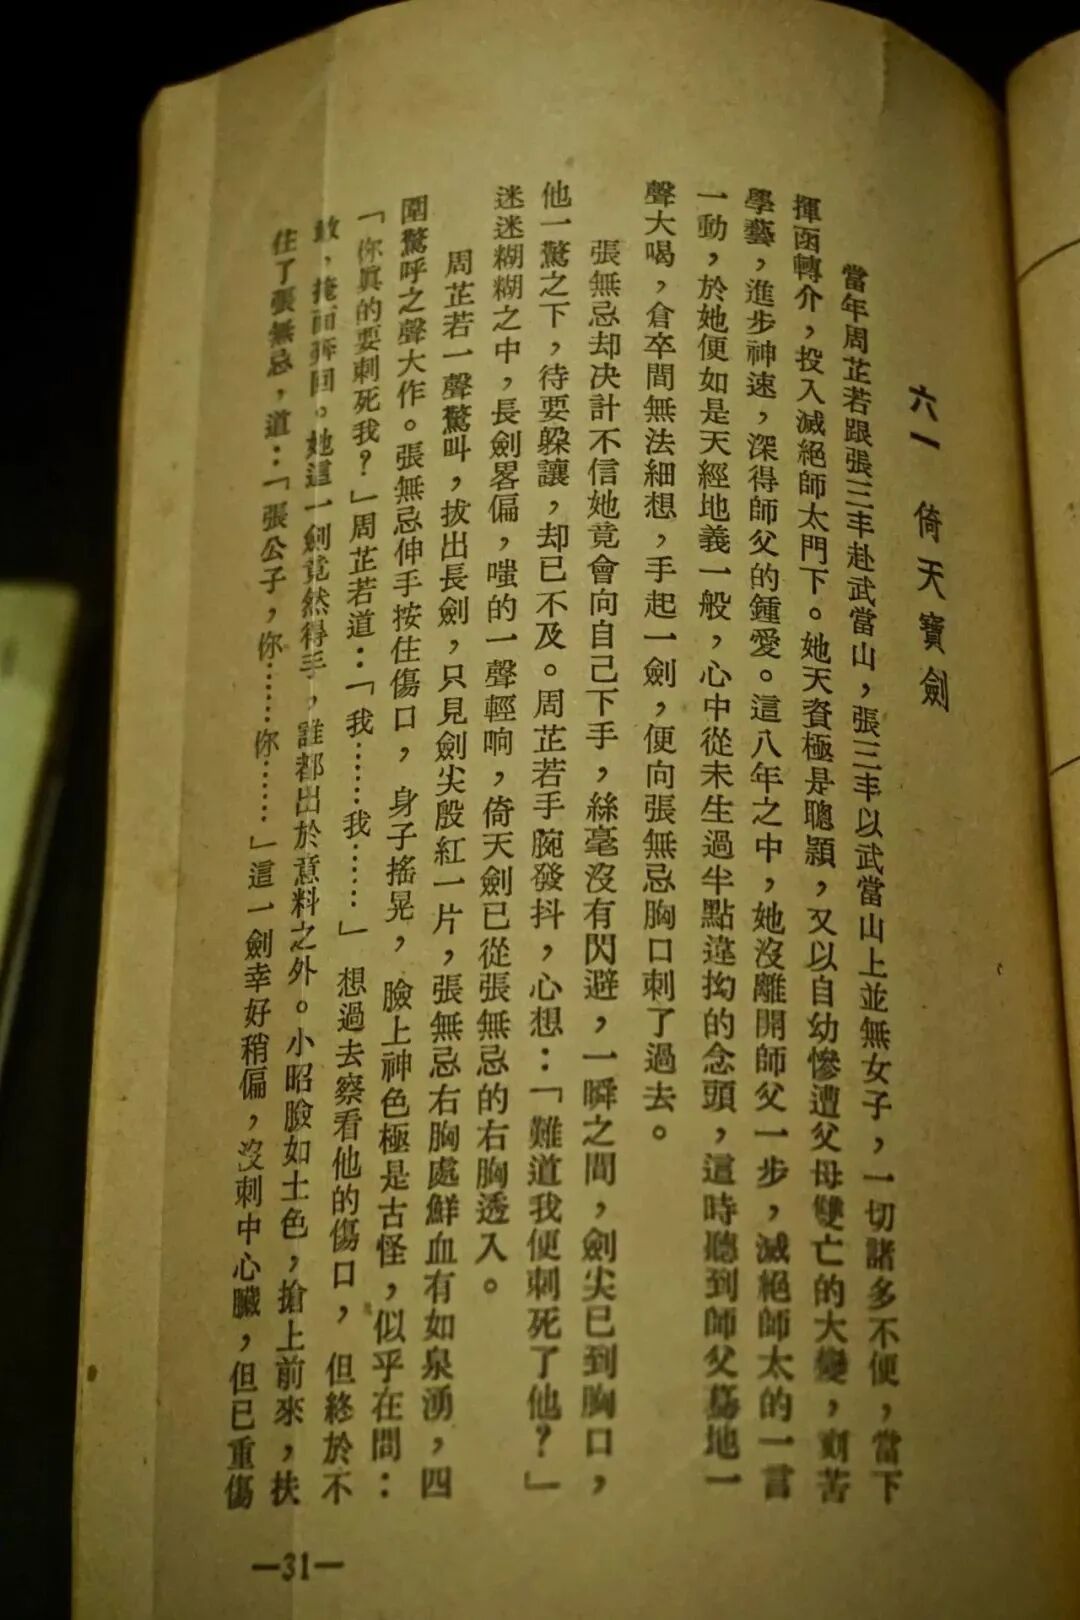 六一　倚天寶劍
當年周芷若跟張三丰赴武當山，張三丰以武當山上並無女子，一切諸多不便，當下
揮函轉介，投入滅絕師太門下。她天資極是聰穎，又以自幼慘遭父母雙亡的大變，刻苦
學藝，進步神速，深得師父的鍾愛。這八年之中，她沒離開師父一步，滅絕師太的一言
一動，於她便如是天經地義一般，心中從未生過半點違拗的念頭，這時聽到師父驀地一
聲大喝，倉卒間無法細想，手起一劍，便向張無忌胸口刺了過去。
張無忌却决計不信她竟會向自己下手，絲毫沒有閃避，一瞬之間，劍尖已到胸口，
他一驚之下，待要躱讓，却已不及。周芷若手腕發抖，心想：「難道我便刺死了他？」
迷迷糊糊之中，長劍畧偏，嗤的一聲輕响，倚天劍已從張無忌的右胸透入。
周芷若一聲驚叫，拔出長劍，只見劍尖殷紅一片，張無忌右胸處鮮血有如泉湧，四
圍驚呼之聲大作。張無忌伸手按住傷口，身子搖晃，臉上神色極是古怪，似乎在問：
「你眞的要刺死我？」周芷若道：「我……我……」想過去察看他的傷口，但終於不
敢，掩面奔回。她這一劍竟然得手，誰都出於意料之外。小昭臉如土色，搶上前來，扶
住了張無忌，道：「張公子，你……你……」這一劍幸好稍偏，沒刺中心臟，但已重傷
—31—